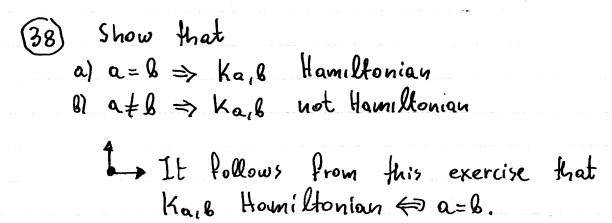 38 Show that
a) a = b ⇒ Ka,b Hamiltonian
b) a ≠ b ⇒ Ka,b not Hamiltonian
It follows from this exercise that
Ka,b Hamiltonian ⇔ a=b.